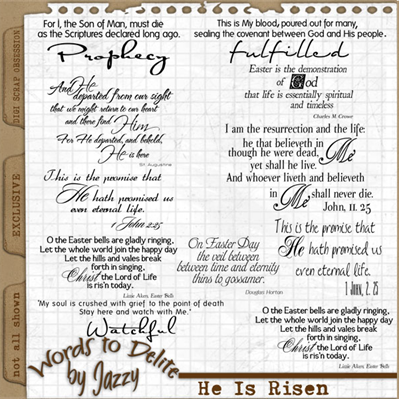 For I, the Son of Man, must die
as the Scriptures declared long ago.
Prophecy
And He
departed from our sight
that we might return to our heart
and there find Him
For He departed, and behold,
He is here
St. Augustine
This is the promise that
He hath promised us
even eternal life.
1 John 2:25
O the Easter bells are gladly ringing,
Let the whole world join the happy day
Let the hills and vales break
forth in singing,
Christ the Lord of Life
is ris'n today.
Lizzie Akers, Easter Bells
"My soul is crushed with grief to the point of death
Stay here and watch with Me."
Watchful
This is My blood, poured out for many,
sealing the covenant between God and His people.
fulfilled
Easter is the demonstration
of God
that life is essentially spiritual
and timeless
Charles M. Crowe
I am the resurrection and the life:
he that believeth in Me
though he were dead,
yet shall he live.
And whoever liveth and believeth
in Me shall never die.
John, 11. 25
On Easter Day
the veil between
between time and eternity
thins to gossamer.
Douglas Horton
This is the promise that
He hath promised us
even eternal life.
1 John, 2. 25
O the Easter bells are gladly ringing,
Let the whole world join the happy day
Let the hills and vales break
forth in singing,
Christ the Lord of Life
is ris'n today.
Lizzie Akers, Easter Bells
DIGI SCRAP OBSESSION
EXCLUSIVE
not all shown
Words to Delite
by Jazzy
He Is Risen